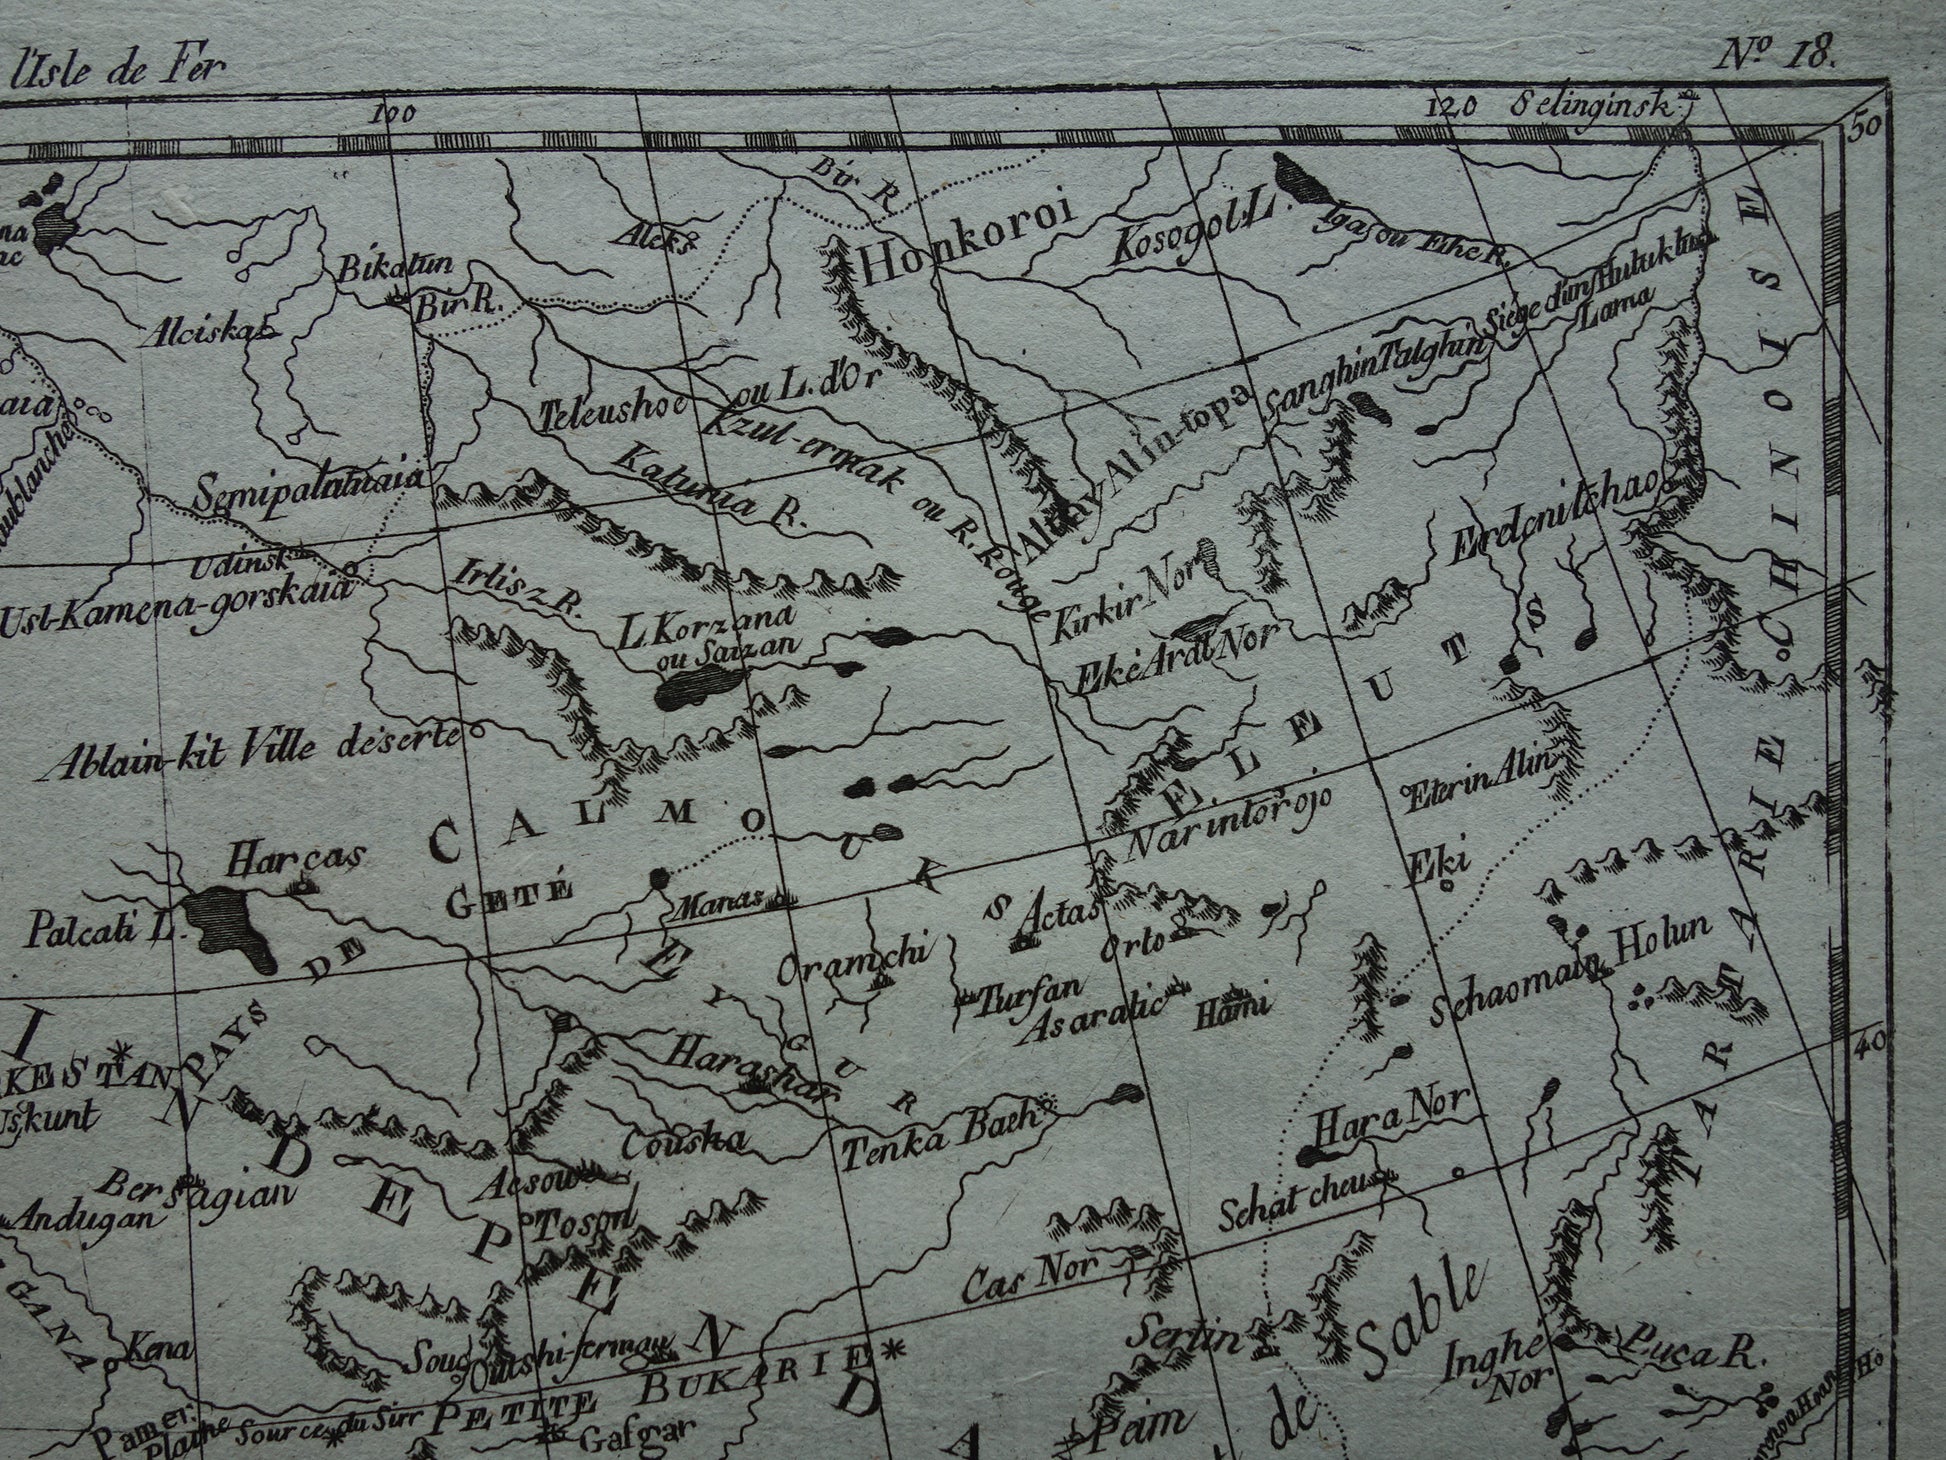 l'Isle de Fer
N.º 18.
100
120
Selinginsk
50
Bir R.
Honkoroi
Kosogol L.
Iga ou Eihe R.
Aleks
Bikatun
Bir R.
Alciska
Siége d'un Hutuktu
Lama
Sanghin Talghin
Teleushoe
ou L. d'Or
Kzul-ermak ou R. Rouge
Altay Alin-topa
Katunia R.
Semipalatnaia
Udinsk
Ust-Kamena-gorskaia
Irtisz R.
L Korzana
ou Saizan
Kirkir Nor
Eke Aral Nor
Erdenitchao
ELEUTS
Ablain-kit Ville déserte
CALMOUKS
Narintorojo
Eterin Alin
Eki
TARTARIE CHINOISE
Harcas
Palcati L.
PAYS DE GETÉ
Manas
Actas
Orto
Oramchi
Turfan
Asaratic
Hami
EYGUR
Schaomain Holun
40
KESTAN
Uskunt
Harashar
Cousha
Tenka Baeh
Hara Nor
Schatcheu
Acsou
Tosod
INDEPEND
Bersagian
Andugan
GANA
Kena
Cas Nor
Sertin
Sable
de
Inghé
Nor
Puca R.
Ho
Soug
Outshi-fermau
PETITE BUKARIE
Pamer
Plaine
Source du Sirr
Gasgar
Peim
A